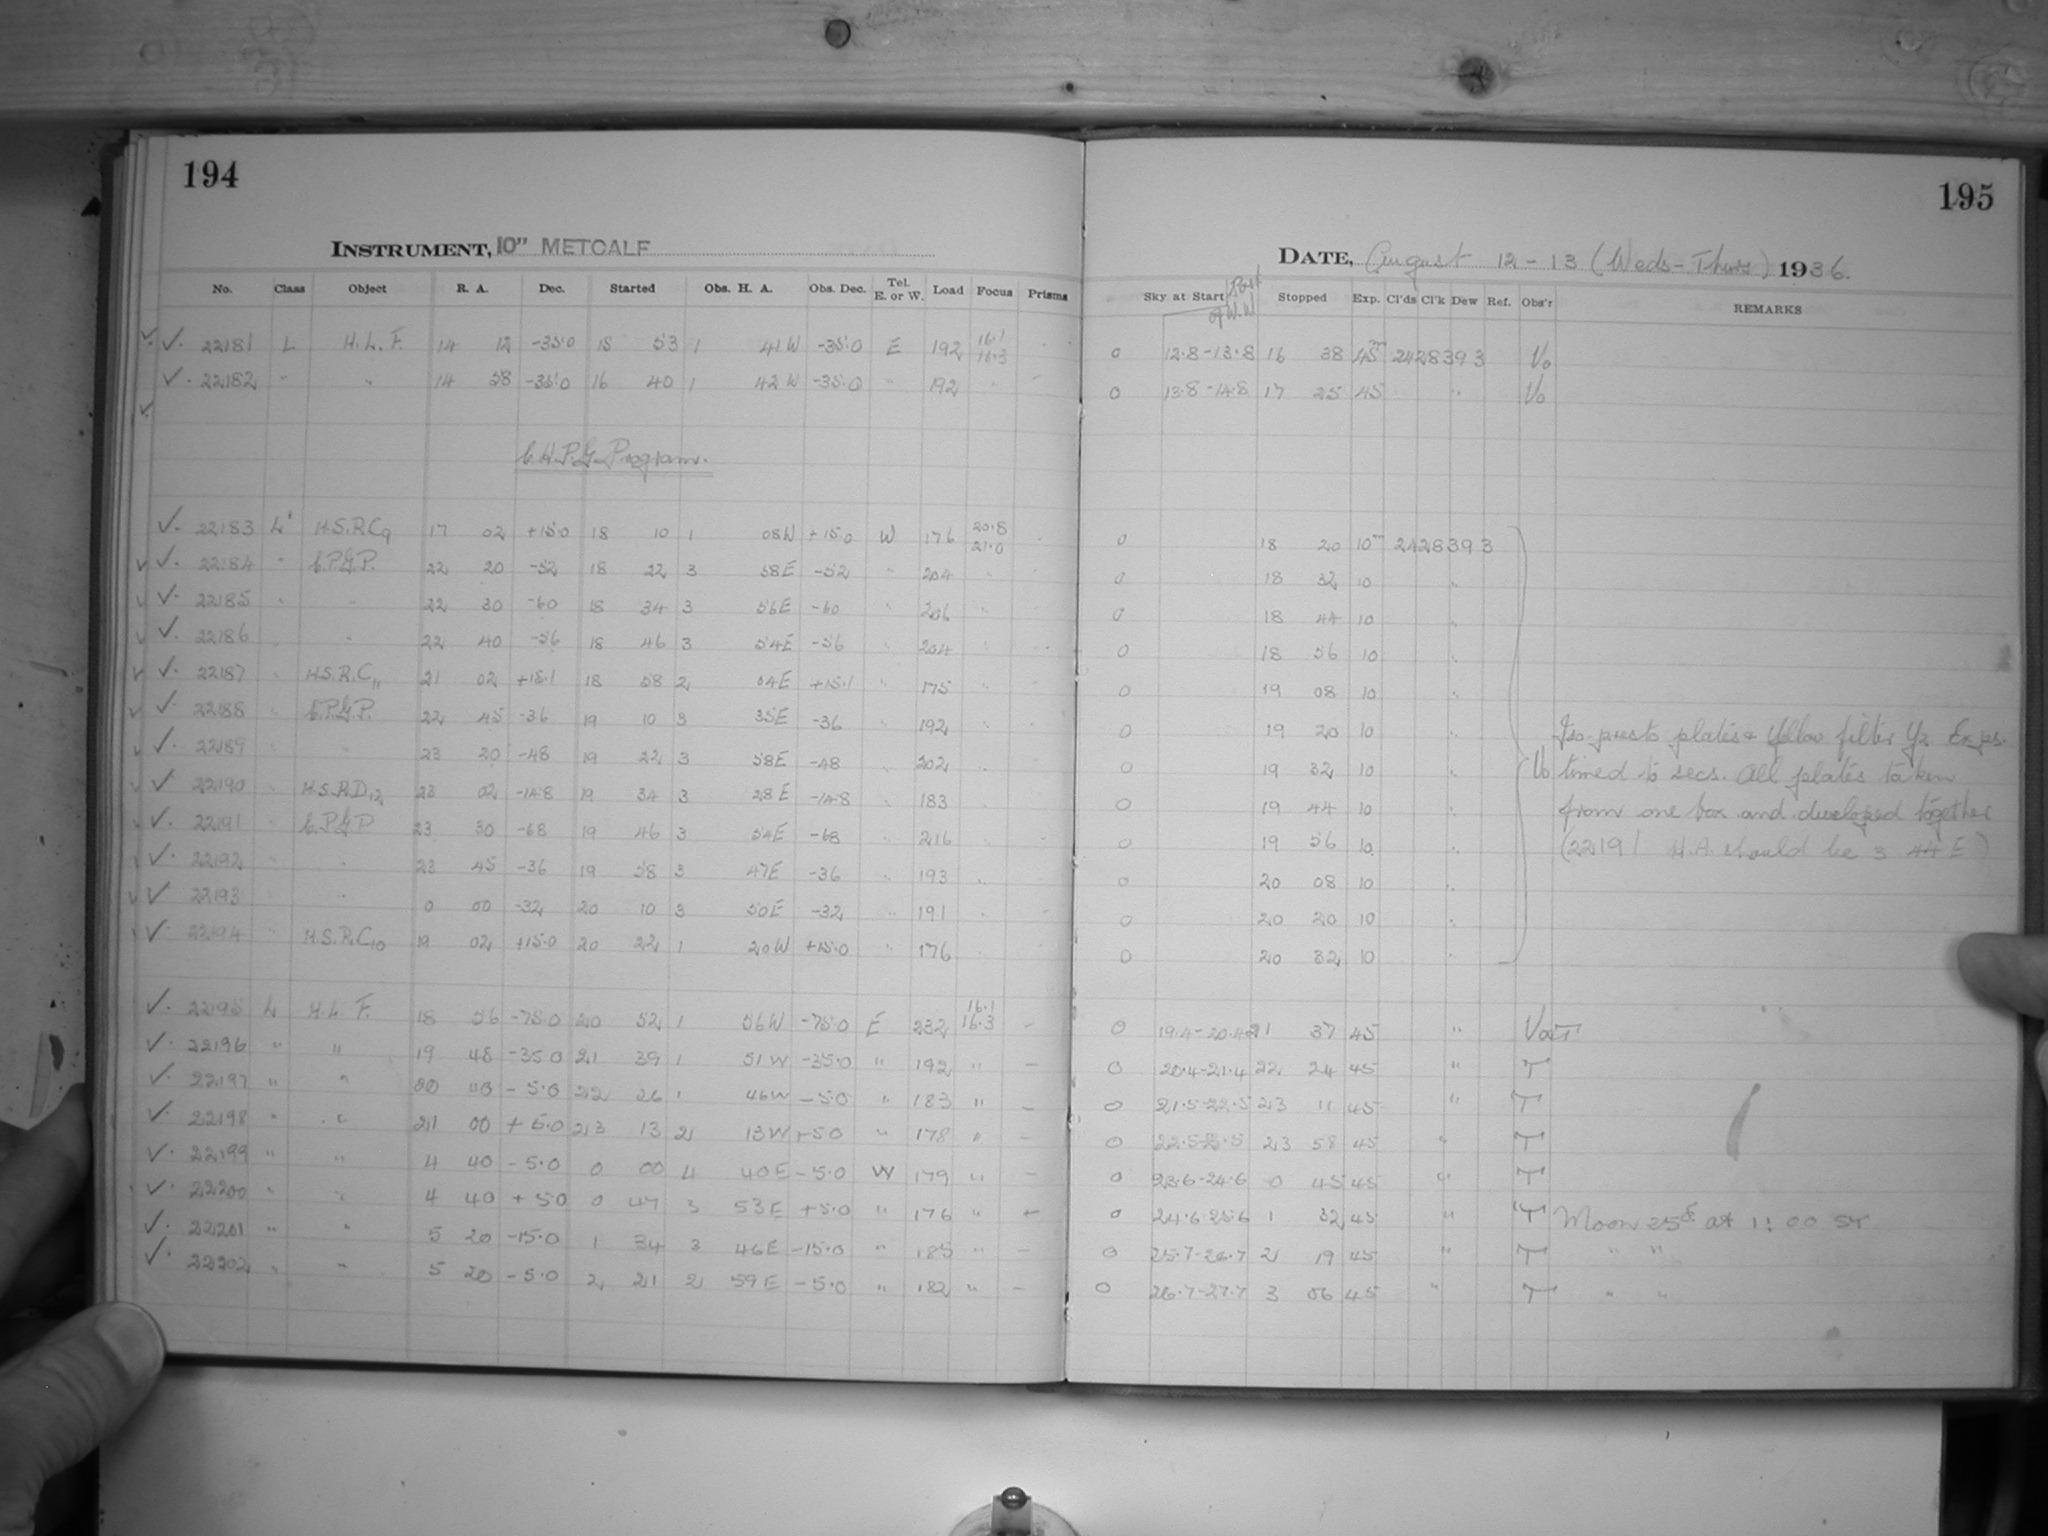 194
INSTRUMENT, 10" METCALF
No. Class Object R. A. Dec. Started Obs. H. A. Obs. Dec. Tel. E. or W. Load Focus Prisms
✓. 22181 L H.L.F. 14 12 -35.0 15 53 1 41W -35.0 E 192 16.1 16.3
✓. 22182 " " 14 58 -35.0 16 40 1 42W -35.0 " 192 "
C.H.P.G. Program.
✓. 22183 L' H.S.R.C9 17 02 +15.0 18 10 1 08W +15.0 W 176 20.8 21.0
✓. 22184 " C.P.G.P. 22 20 -52 18 22 3 58E -52 " 204 "
✓. 22185 " " 22 30 -60 18 34 3 56E -60 " 206 "
✓. 22186 " 22 40 -56 18 46 3 54E -56 " 204
✓. 22187 " H.S.R.C11 21 02 +15.1 18 58 2 04E +15.1 " 175 "
✓. 22188 " C.P.G.P. 22 45 -36 19 10 3 35E -36 " 192 "
✓. 22189 " " 23 20 -48 19 22 3 58E -48 " 202 "
✓. 22190 " H.S.R.D12 23 02 -14.8 19 34 3 28E -14.8 " 183 "
✓. 22191 " C.P.G.P 23 30 -68 19 46 3 54E -68 " 216 "
✓. 22192 " " 23 45 -36 19 58 3 47E -36 " 193 "
✓. 22193 " " 0 00 -32 20 10 3 50E -32 " 191 "
✓. 22194 " H.S.R.C10 19 02 +15.0 20 22 1 20W +15.0 " 176 "
✓. 22195 L H.L.F. 18 56 -75.0 20 52 1 56W -75.0 E 232 16.1 16.3 -
✓. 22196 " " 19 48 -35.0 21 39 1 51W -35.0 " 192 " -
✓. 22197 " " 20 40 -5.0 22 26 1 46W -5.0 " 183 " -
✓. 22198 " " 21 00 +5.0 23 13 2 13W +5.0 " 178 " -
✓. 22199 " " 4 40 -5.0 0 00 4 40E -5.0 W 179 " -
✓. 22200 " " 4 40 +5.0 0 47 3 53E +5.0 " 176 " -
✓. 22201 " " 5 20 -15.0 1 34 3 46E -15.0 " 185 " -
✓. 22202 " " 5 20 -5.0 2 21 2 59E -5.0 " 182 " -
195
DATE, August 12-13 (Weds-Thurs) 1936.
Sky at Start Post of W.W Stopped Exp. Cl'ds Cl'k Dew Ref. Obs'r REMARKS
0 12.8-13.8 16 38 45m 2428393 Vo
0 13.8-14.8 17 25 45 " Vo
0 18 20 10m 2428393
0 18 32 10 "
0 18 44 10 "
0 18 56 10 "
0 19 08 10 "
0 19 20 10 " Iso-presto plates & Yellow filter Y2 Exps.
0 19 32 10 " Vo timed to secs. All plates taken
0 19 44 10 " from one box and developed together
0 19 56 10 " (22191 H.A. should be 3 44 E)
0 20 08 10 "
0 20 20 10 "
0 20 32 10 "
0 19.4-20.4 21 37 45 " Vo&T
0 20.4-21.4 22 24 45 " T
0 21.5-22.5 23 11 45 " T
0 23 58 45 " T
0 23.6-24.6 0 45 45 " T
0 24.6-25.6 1 32 45 " T Moon 25d at 1:00 ST
0 25.7-26.7 2 19 45 " T " "
0 26.7-27.7 3 06 45 " T " "